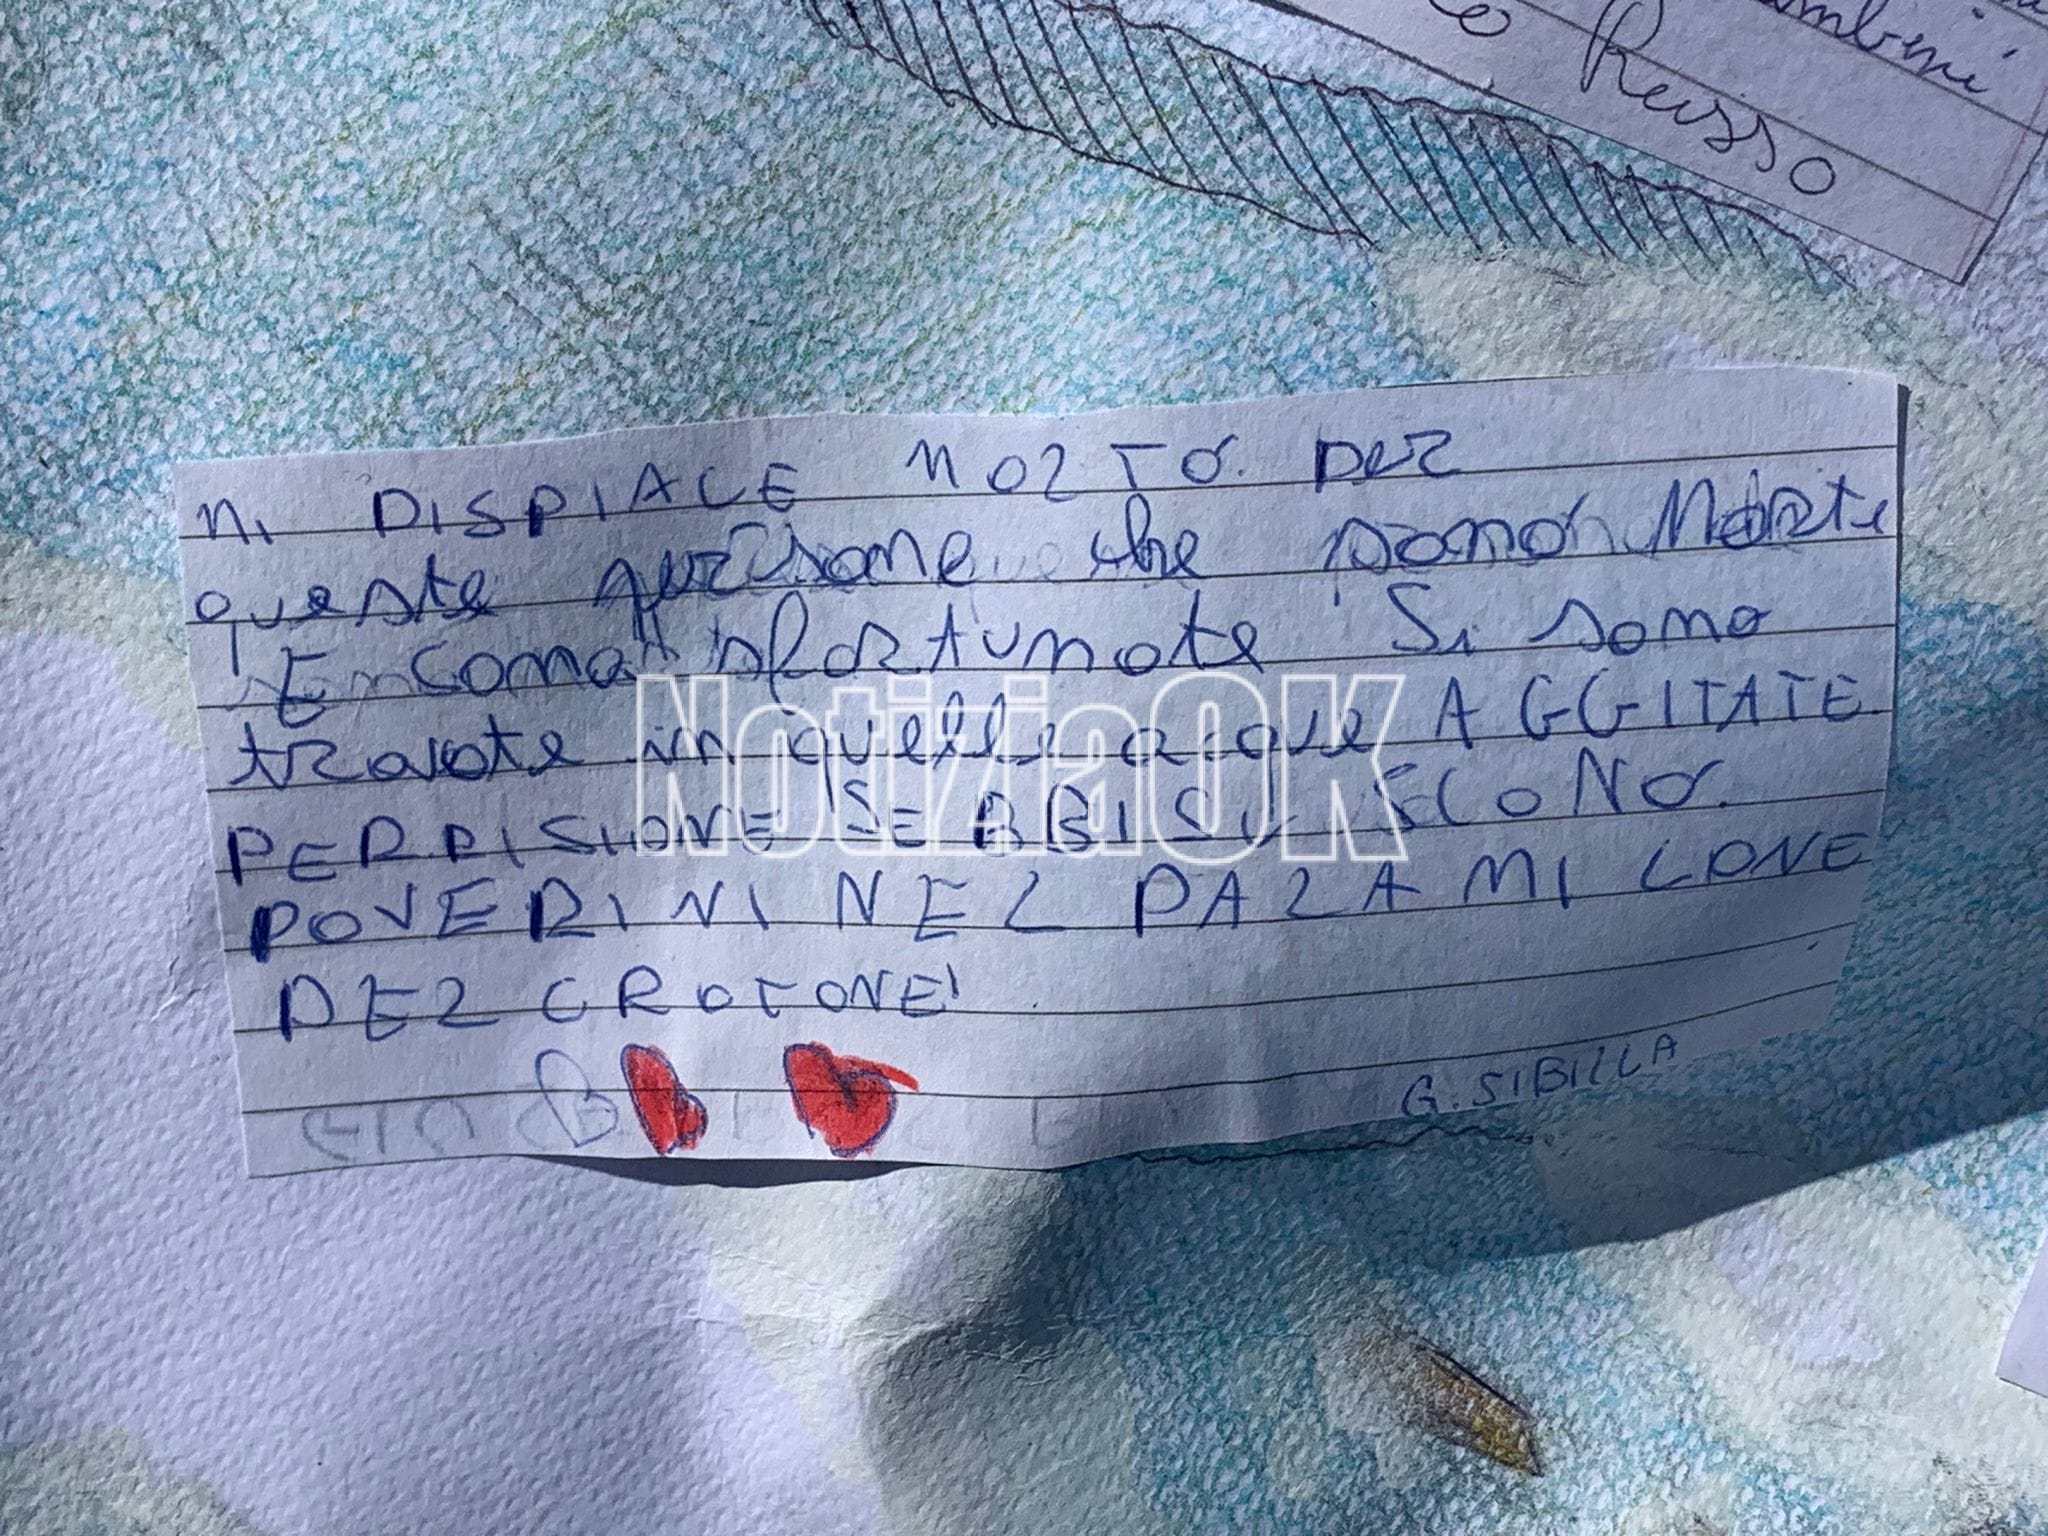 ambini
o Russo
MI DISPIACE MOLTO. PER
queste persone che sono Morte
E sono sfortunate Si sono
trovate in quelle acque AGGITATE.
SCONO.
POVERINI NEL PALA MI LONE
DEL CROTONE!
G. SIBILLA
NotiziaOK